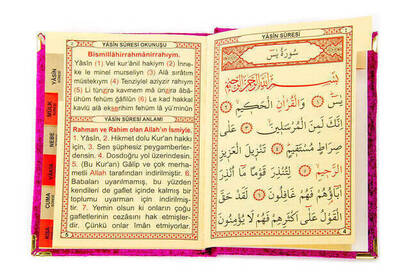 YÂSÎN SÛRESİ OKUNUŞU
Bismillâhirrahmânirrahıym.
Yâsîn (1) Vel kur'ânil hakıym (2) İnne-
ke le minel murseliyn (3) Alâ sırâtım
müstekıym (4) Tenziylel aziyzir rahıym
(5) Li tünzira kavmem mâ ünzira âbâ-
ühüm fehüm ğâfilûn (6) Le kad hakkal
kavlü alâ ekserihim fehüm lâ yü'minûn
YÂSÎN SÛRESİ ANLAMI
Rahman ve Rahim olan Allah'ın İsmiyle.
1. Yâsîn, 2. Hikmet dolu Kur'an hakkı
için, 3. Sen şüphesiz peygamberler-
densin. 4. Dosdoğru yol üzerindesin.
5. (Bu Kur'an) Gâlip ve çok merha-
metli Allah tarafından indirilmiştir. 6.
Babaları uyarılmamış, bu yüzden
kendileri de gaflet içinde kalmış bir
toplumu uyarman için indirilmiş-
tir. 7. Yemin olsun ki onların çoğu
gafletlerinin cezasını hak etmişler-
dir. Çünkü onlar İman etmiyorlar.
YÂSİN
MÜLK
NEBE
VAKIA
CUMA
KISA
YÂSÎN SÛRESİ
سُورَةُ يٰسٓ
بِسْمِ اللّٰهِ الرَّحْمٰنِ الرَّحِيمِ
يٰسٓ ﴿١﴾ وَالْقُرْاٰنِ الْحَكِيمِ ﴿٢﴾
اِنَّكَ لَمِنَ الْمُرْسَلِينَ ﴿٣﴾ عَلٰى
صِرَاطٍ مُسْتَقِيمٍ ﴿٤﴾ تَنْزِيلَ الْعَزِيزِ
الرَّحِيمِ ﴿٥﴾ لِتُنْذِرَ قَوْمًا مَٓا اُنْذِرَ
اٰبَٓاؤُهُمْ فَهُمْ غَافِلُونَ ﴿٦﴾ لَقَدْ حَقَّ
الْقَوْلُ عَلٰٓى اَكْثَرِهِمْ فَهُمْ لَا يُؤْمِنُونَ